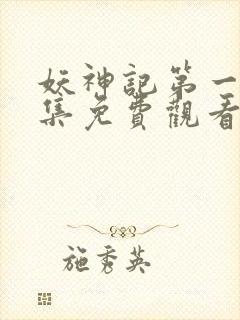 妖神記第一
集免費觀看
施秀英